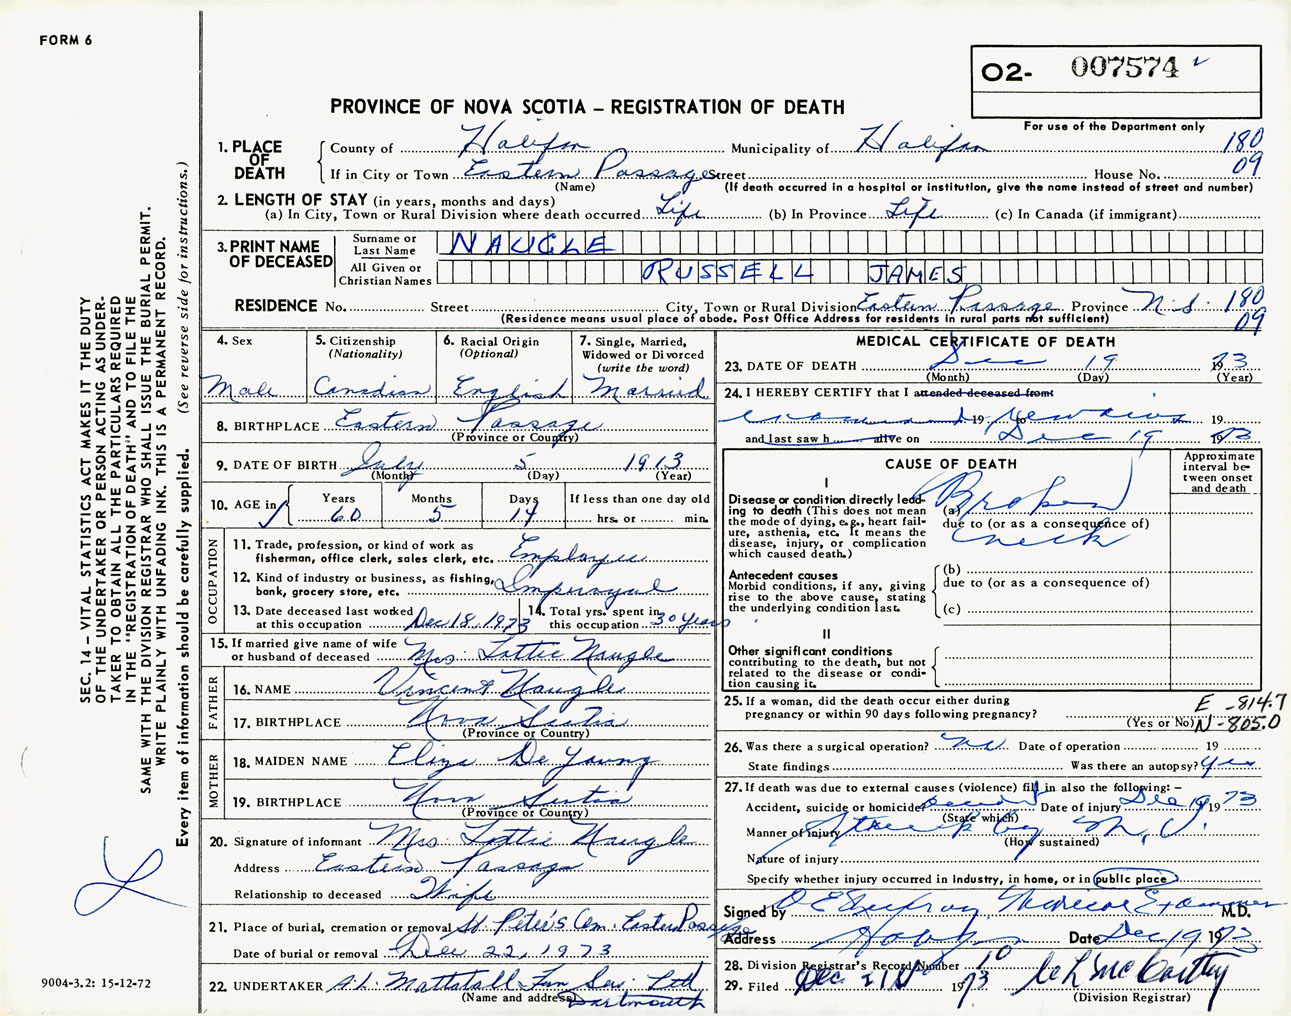 FORM 6
O2- 007574
For use of the Department only
PROVINCE OF NOVA SCOTIA – REGISTRATION OF DEATH
1. PLACE OF DEATH
County of Halifax Municipality of Halifax 180
If in City or Town Eastern Passage Street House No. 09
(Name) (If death occurred in a hospital or institution, give the name instead of street and number)
2. LENGTH OF STAY (in years, months and days)
(a) In City, Town or Rural Division where death occurred Life (b) In Province Life (c) In Canada (if immigrant)
3. PRINT NAME OF DECEASED
Surname or Last Name NAUGLE
All Given or Christian Names RUSSELL JAMES
RESIDENCE No. Street City, Town or Rural Division Eastern Passage Province N.S. 180
(Residence means usual place of abode. Post Office Address for residents in rural parts not sufficient) 09
4. Sex
Male
5. Citizenship (Nationality)
Canadian
6. Racial Origin (Optional)
English
7. Single, Married, Widowed or Divorced (write the word)
Married
8. BIRTHPLACE Eastern Passage
(Province or Country)
9. DATE OF BIRTH July 5 1913
(Month) (Day) (Year)
10. AGE in
Years Months Days If less than one day old
60 5 14 hrs. or min.
OCCUPATION
11. Trade, profession, or kind of work as fisherman, office clerk, sales clerk, etc. Employee
12. Kind of industry or business, as fishing, bank, grocery store, etc. Imperoyal
13. Date deceased last worked at this occupation Dec 18, 1973
14. Total yrs. spent in this occupation 30 years
15. If married give name of wife or husband of deceased Mrs. Lottie Naugle
FATHER
16. NAME Vincent Naugle
17. BIRTHPLACE Nova Scotia
(Province or Country)
MOTHER
18. MAIDEN NAME Eliza De Young
19. BIRTHPLACE Nova Scotia
(Province or Country)
20. Signature of informant Mrs Lottie Naugle
Address Eastern Passage
Relationship to deceased Wife
21. Place of burial, cremation or removal St Peter's Cem. Eastern Passage
Date of burial or removal Dec 22, 1973
22. UNDERTAKER A.L. Mattatall Fun Ser. Ltd
(Name and address) Dartmouth
MEDICAL CERTIFICATE OF DEATH
23. DATE OF DEATH Dec 19 1973
(Month) (Day) (Year)
24. I HEREBY CERTIFY that I attended deceased from
examined 19 to remains 19
and last saw h alive on Dec 19 1973
CAUSE OF DEATH
Approximate interval between onset and death
I
Disease or condition directly leading to death (This does not mean the mode of dying, e.g., heart failure, asthenia, etc. It means the disease, injury, or complication which caused death.)
(a) Broken
due to (or as a consequence of)
neck
Antecedent causes
Morbid conditions, if any, giving rise to the above cause, stating the underlying condition last.
(b)
due to (or as a consequence of)
(c)
II
Other significant conditions contributing to the death, but not related to the disease or condition causing it.
25. If a woman, did the death occur either during pregnancy or within 90 days following pregnancy?
(Yes or No)
E -814.7
N-805.0
26. Was there a surgical operation? no Date of operation 19
State findings Was there an autopsy? yes
27. If death was due to external causes (violence) fill in also the following: –
Accident, suicide or homicide accident Date of injury Dec 19 1973
(State which)
Manner of injury Struck by M.V.
(How sustained)
Nature of injury
Specify whether injury occurred in Industry, in home, or in public place
Signed by Medical Examiner M.D.
Address Date Dec 19 1973
28. Division Registrar's Record Number 10
29. Filed Dec 21st 1973
(Division Registrar)
SEC. 14 – VITAL STATISTICS ACT MAKES IT THE DUTY
OF THE UNDERTAKER OR PERSON ACTING AS UNDER-
TAKER TO OBTAIN ALL THE PARTICULARS REQUIRED
IN THE "REGISTRATION OF DEATH" AND TO FILE THE
SAME WITH THE DIVISION REGISTRAR WHO SHALL ISSUE THE BURIAL PERMIT.
WRITE PLAINLY WITH UNFADING INK. THIS IS A PERMANENT RECORD.
Every item of information should be carefully supplied. (See reverse side for instructions.)
9004-3.2: 15-12-72